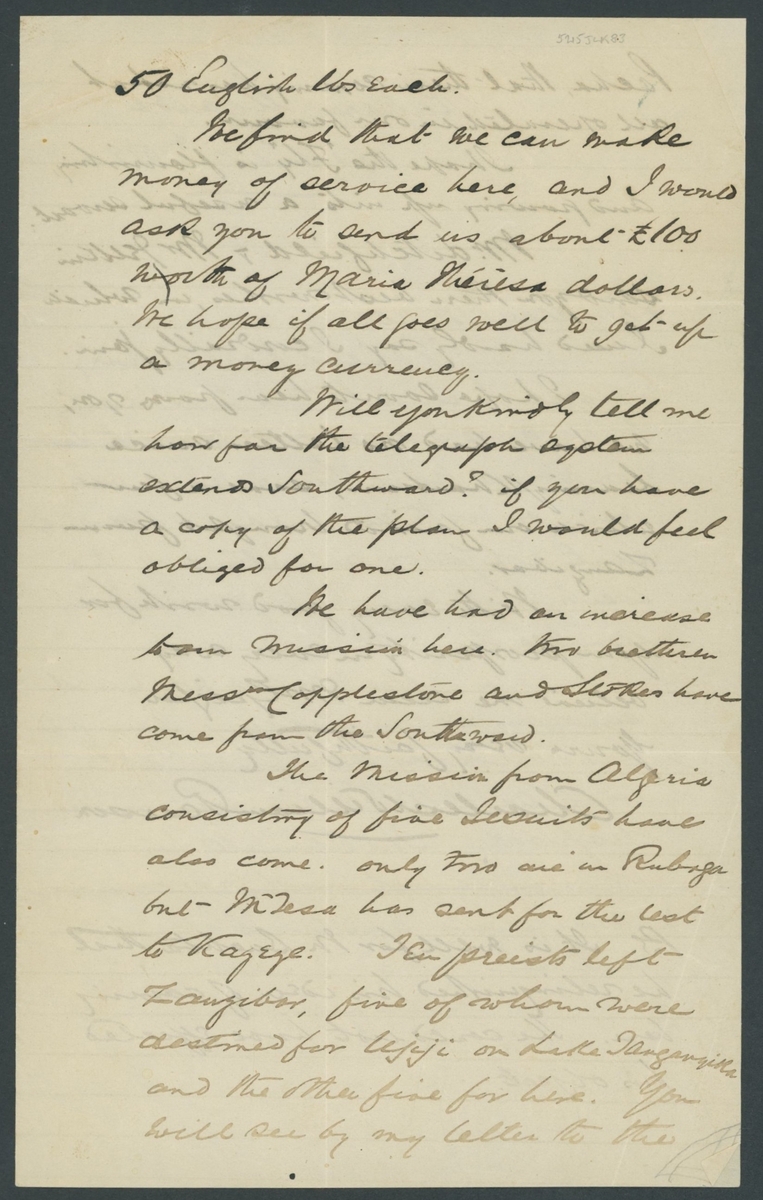 50 English lbs Each.
We find that we can make
money of service here, and I would
ask you to send us about £100
worth of Maria Théresa dollars.
We hope if all goes well to get up
a money currency.
Will you kindly tell me
how far the telegraph system
extends Southward? if you have
a copy of the plan I would feel
obliged for one.
We have had an increase
to our Mission here. Two brethren
Messrs Copplestone and Stokes have
come from the Southward.
The Mission from Algeria
consisting of five Jesuits have
also come. only two are in Rubaga
but M'Tesa has sent for the rest
to Kageye. Ten preists left
Zanzibar, five of whom were
destined for Ujiji on Lake Tanganyika
and the other five for here. You
will see by my letter to the